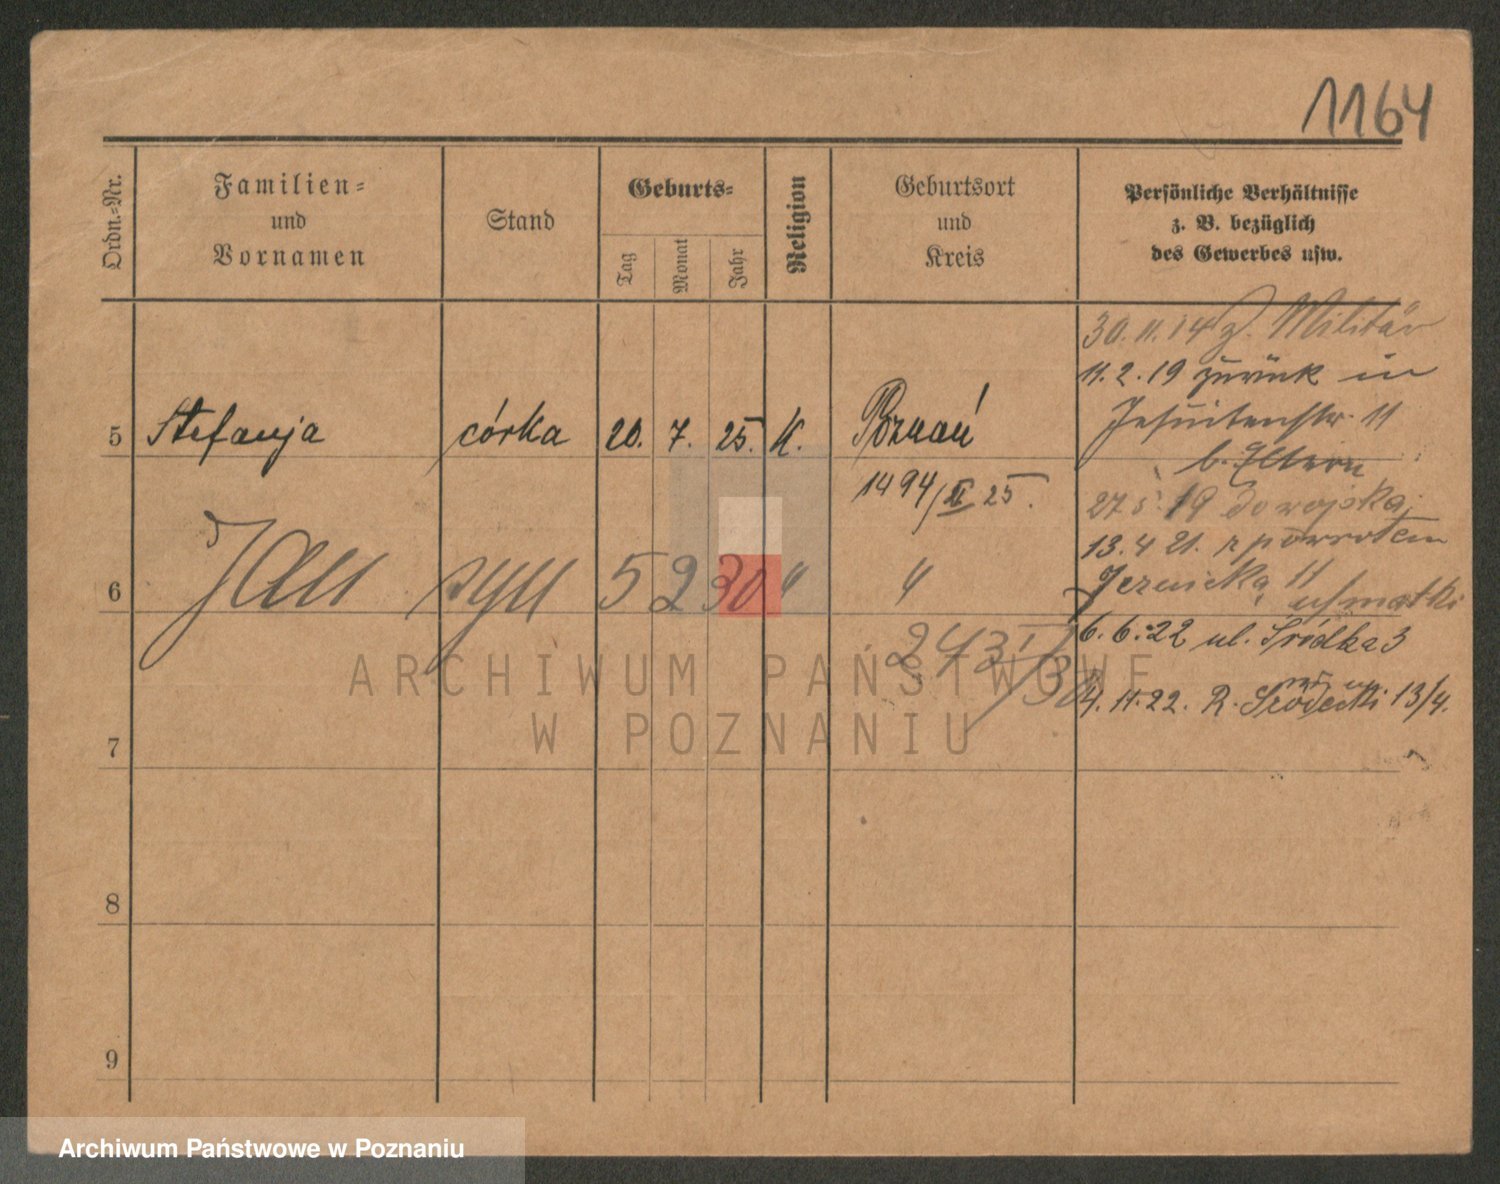 1164
Ordn.-Nr.
Familien-
und
Vornamen
Stand
Geburts-
Tag
Monat
Jahr
Religion
Geburtsort
und
Kreis
Persönliche Verhältnisse
z. B. bezüglich
des Gewerbes usw.
30.11.14 z. Militär
11.2.19 zurück in
Jesuitenstr. 11
b. Eltern
5 Stefanja córka 20. 7. 25. K. Poznań
1494/II 25.
27.5.19 do wojska
13.4.21. z powrotem
6 Jan syn 5 2 30 " "
Jezuicka 11 u/matki
243 I/30
6.6.22 ul. Śródka 3
4.11.22. R. Śródecki 13/4.
7
8
9
ARCHIWUM PAŃSTWOWE
W POZNANIU
Archiwum Państwowe w Poznaniu